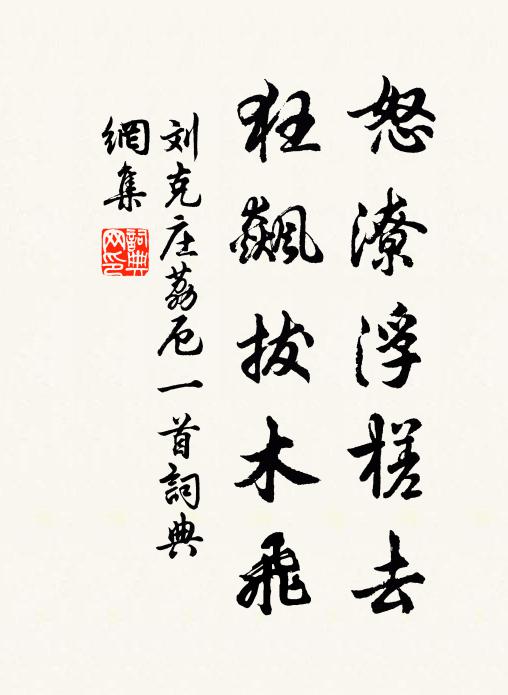 怒潦浮槎去
狂飙拔木飛
刘克庄荔厄一首詞典
網集
詞典网印